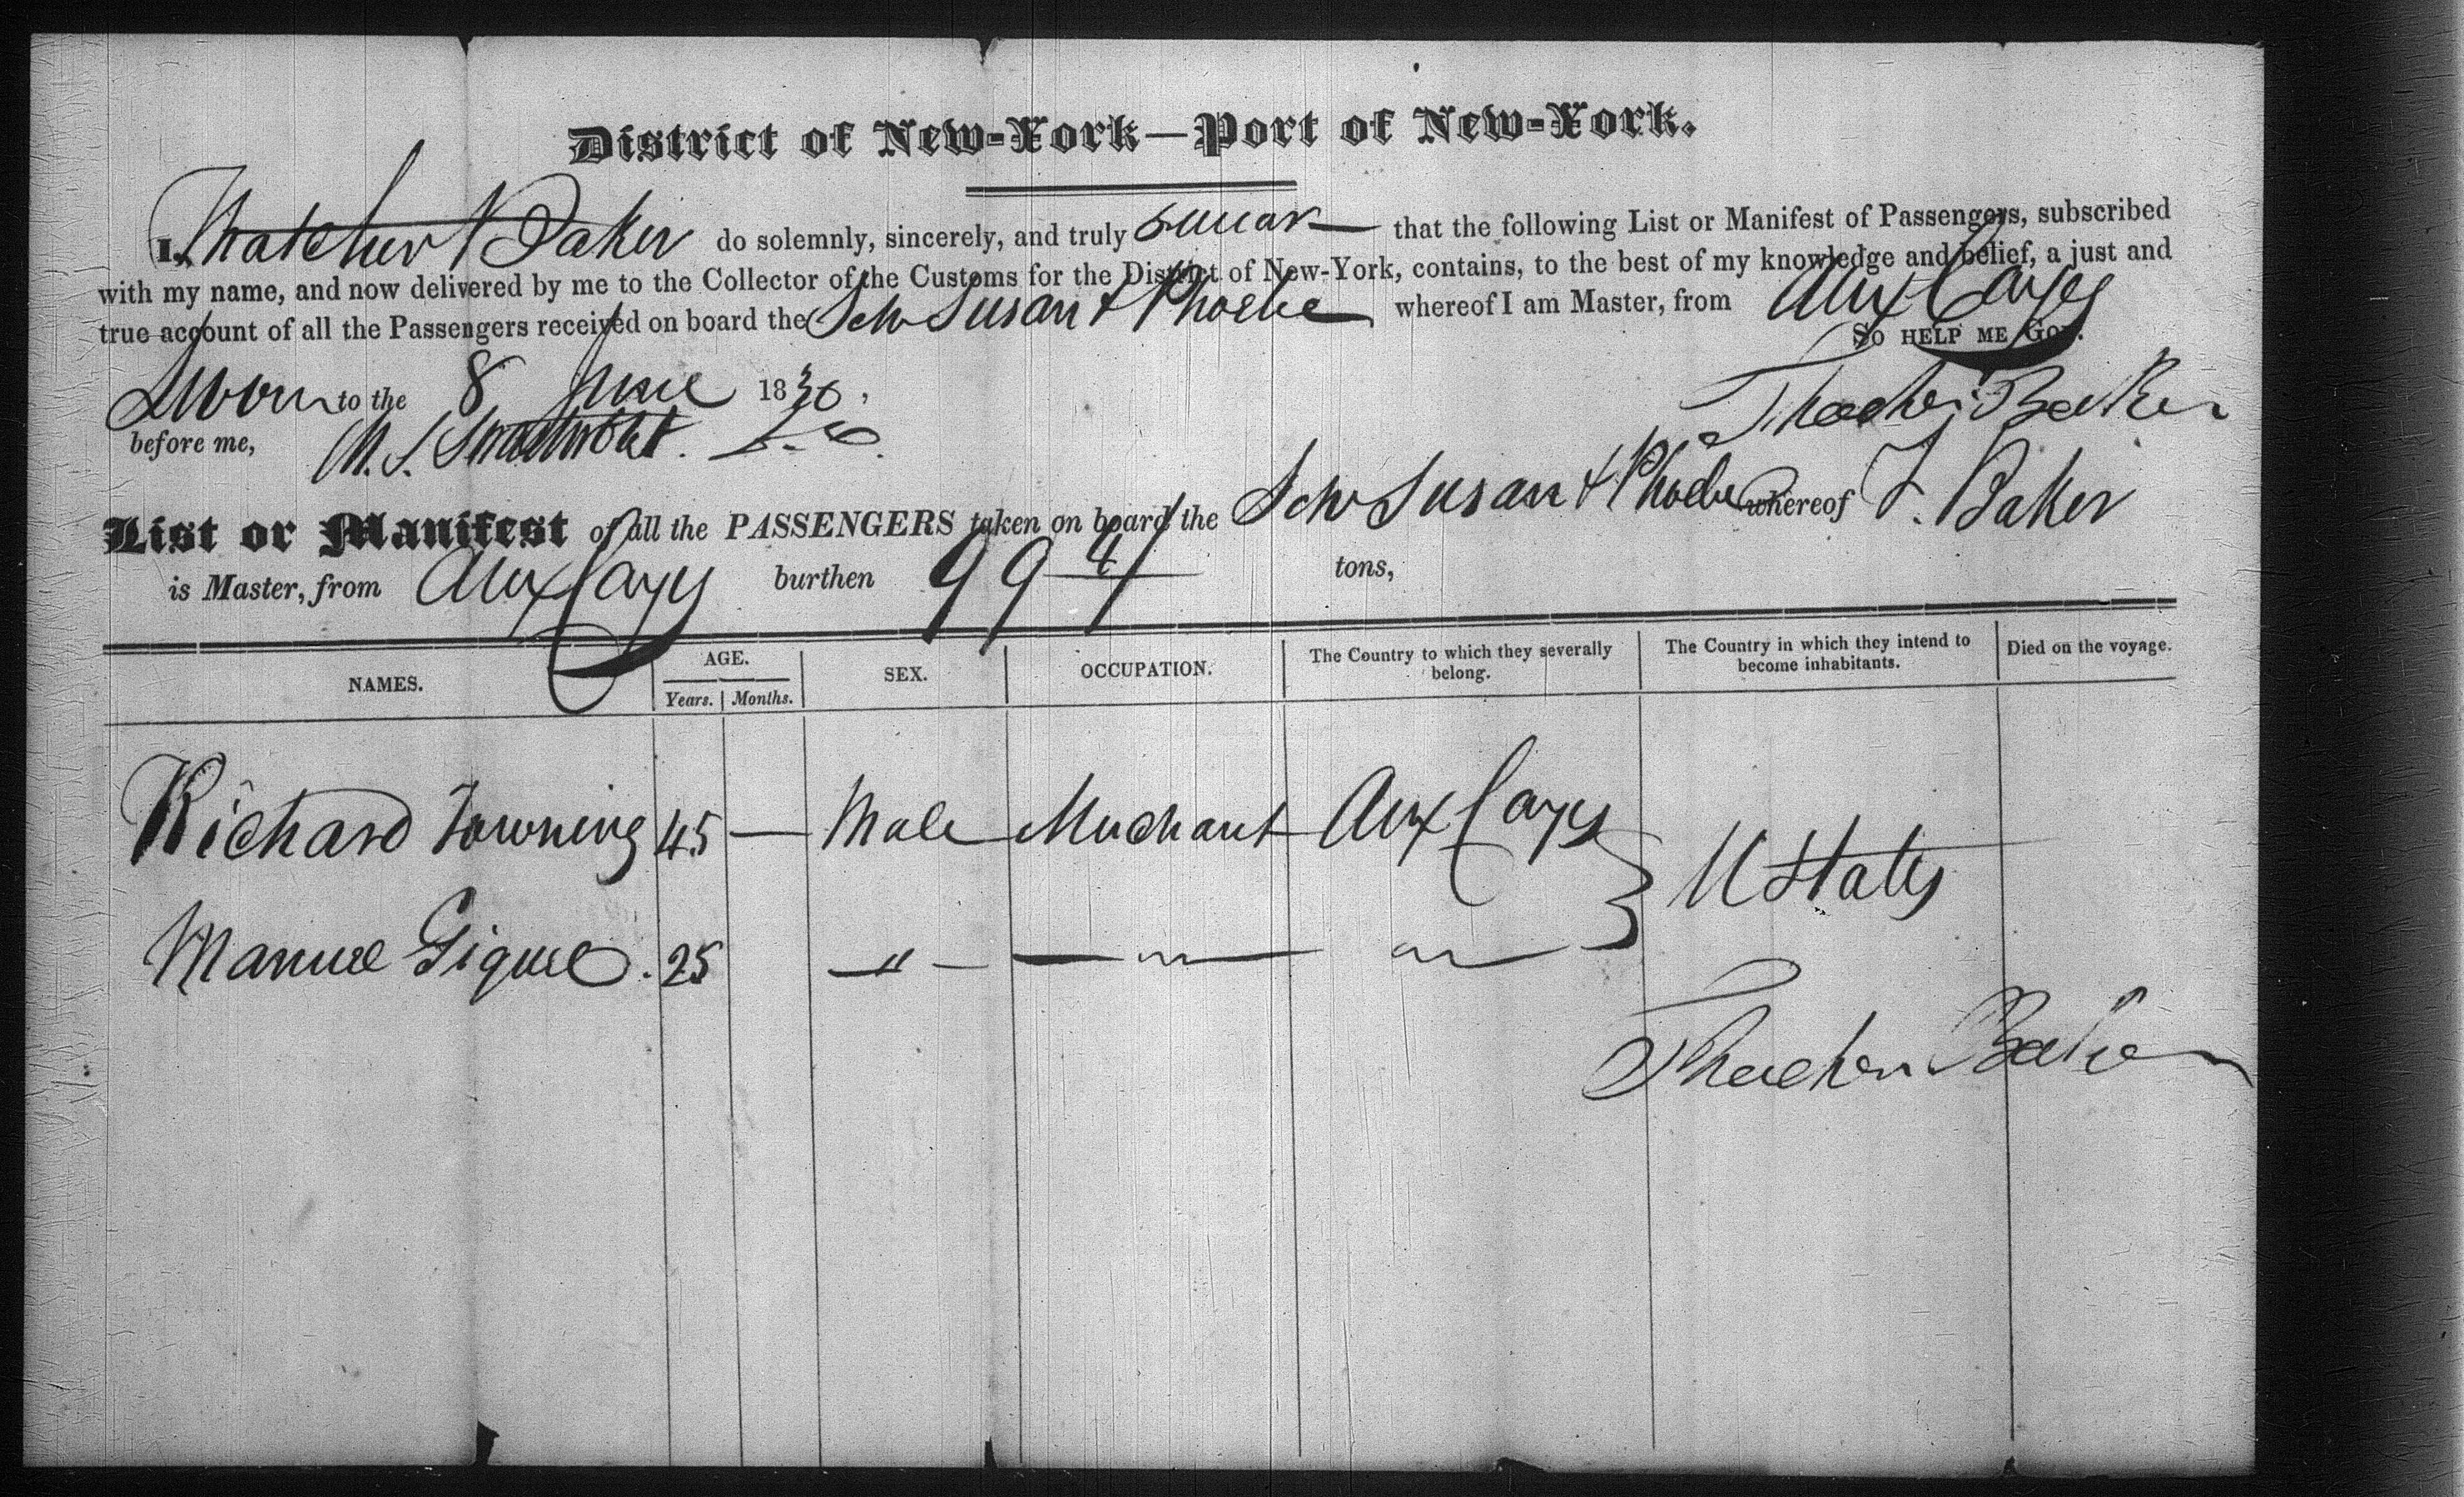 District of New-York—Port of New-York.
I, Thatcher Baker do solemnly, sincerely, and truly swear that the following List or Manifest of Passengers, subscribed
with my name, and now delivered by me to the Collector of the Customs for the District of New-York, contains, to the best of my knowledge and belief, a just and
true account of all the Passengers received on board the Schr Susan & Phoebe whereof I am Master, from Aux Cayes
So help me God.
Sworn to the 8 June 1830,
before me,
Thacher Baker
List or Manifest of all the PASSENGERS taken on board the Schr Susan & Phoebe whereof T. Baker
is Master, from Aux Cays burthen 99 tons,
NAMES. AGE. SEX. OCCUPATION. The Country to which they severally belong. The Country in which they intend to become inhabitants. Died on the voyage.
Years. Months.
Richard Towning 45 — Male Merchant Aux Cays
U States
Manuel 25 — " —
Thacher Baker